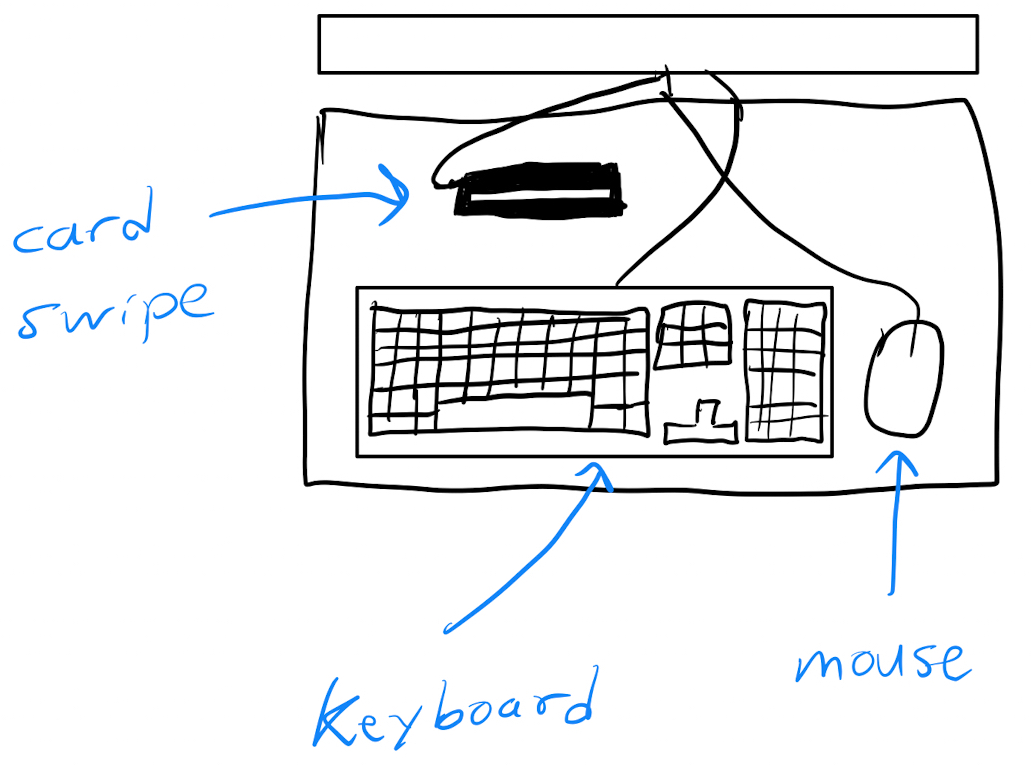 card
swipe
keyboard
mouse